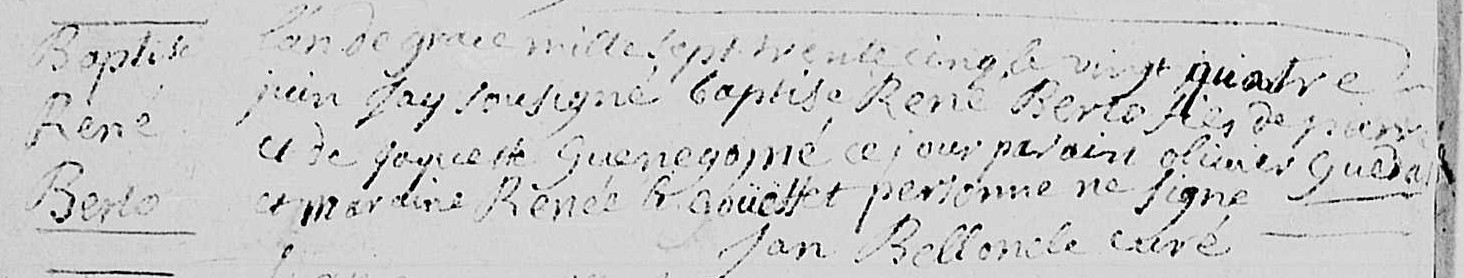 Baptise
René
Berto
l'an de grace mille sept trente cinq le vingt quatre
juin Jay sousigné baptisé René Berto fies de pierre
et de jaquette Guenegomé ce jour parain olivier
et maraine Renée le goüeff et personne ne signe
Jan Belloncle curé